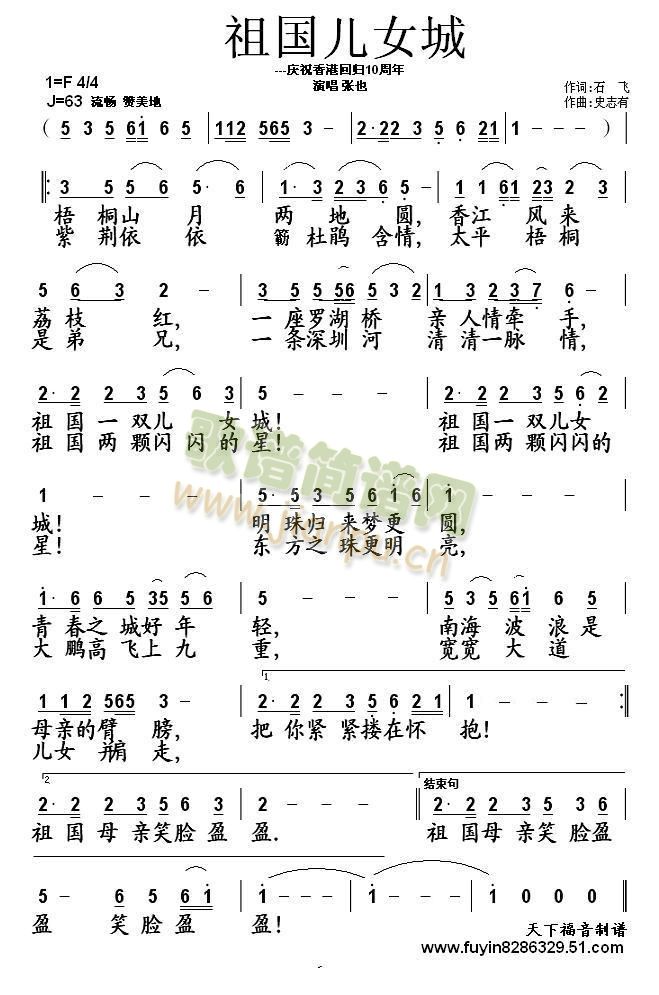 祖国儿女城
---庆祝香港回归10周年
演唱 张也
1=F 4/4
J=63 流畅 赞美地
作词:石 飞
作曲:史志有
( 5 3 5 6i 6 5 | 112 565 3 | 2·22 3 5 6 21 | 1 - - - )
3 5 5 6 5· 6 | 1· 3 2 3 6 5 - | 1 1 61 23 2 3
梧 桐山 月 两 地 圆, 香江 风来
紫 荆依 依 簕 杜鹃 含情, 太平 梧桐
5 6 3 2 - | 3 5 5 56 5 3 2 | 1 3 2 3 7 6 - |
荔 枝 红, 一 座罗 湖 桥 亲 人情牵 手,
是 弟 兄, 一 条深 圳 河 清 清一脉 情,
2· 2 2 3 5 6 3 | 5 - - - | 2· 2 2 3 5 6 2 |
祖 国 一 双儿 女 城! 祖 国一 双儿女
祖 国 两 颗闪 闪的 星! 祖 国两 颗闪闪的
1 - - - | 5· 5 3 5 6 i 6 i - |
城! 明 珠归 来梦更 圆,
星! 东 方之 珠更明 亮,
i· 6 6 5 6 35 5 6 | 5 - - - | 5 3 5 6i 6 5
青 春之 城好 年 轻, 南海 波 浪 是
大 鹏高 飞上 九 重, 宽宽 大 道
1.
1 1 2 565 3 - | 2· 2 2 3 5 6 2 1 | 1 - - - :||
母亲的臂 膀, 把 你紧 紧搂在怀 抱!
儿女 并肩 走,
2.
结束句
2· 2 2 3 5 6 3 | 2 - - - || 2· 2 2 3 5 6 3
祖 国 母 亲笑脸 盈 盈. 祖 国母 亲笑脸盈
5 - 6 5 6 i | i - - - | i - - - | 1 0 0 0 ||
盈 笑 脸盈 盈!
天下福音制谱
www.fuyin8286329.51.com
歌谱简谱网
www.jianpu.cn